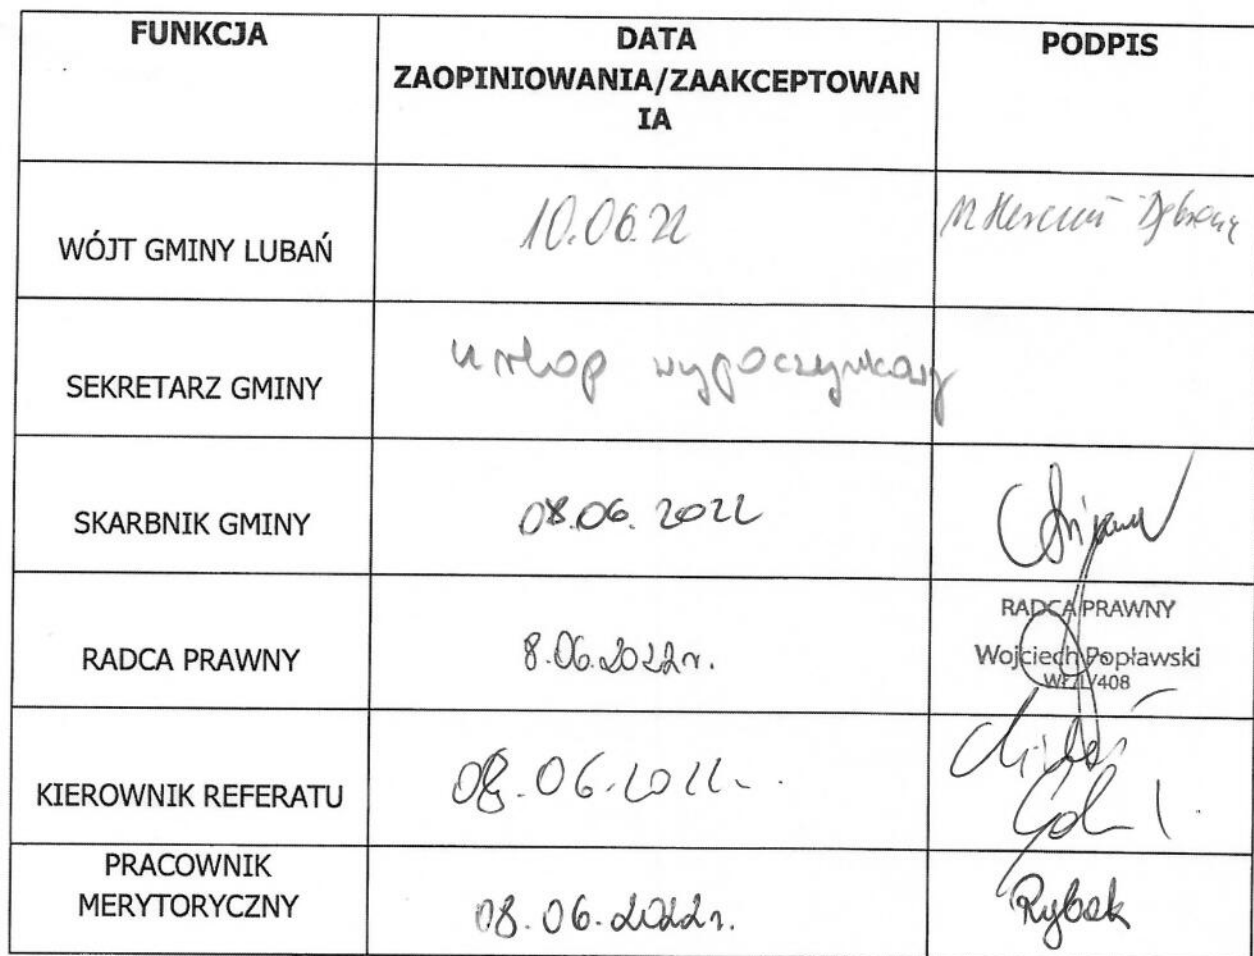 FUNKCJA
DATA
ZAOPINIOWANIA/ZAAKCEPTOWAN
IA
PODPIS
WÓJT GMINY LUBAŃ
10.06.22
SEKRETARZ GMINY
urlop wypoczynkowy
SKARBNIK GMINY
08.06.2022
RADCA PRAWNY
8.06.2022r.
RADCA PRAWNY
Wojciech Popławski
KIEROWNIK REFERATU
08.06.2022r.
PRACOWNIK
MERYTORYCZNY
08.06.2022r.
Rybak